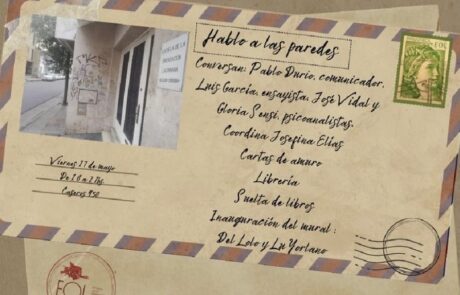 Hablo a las paredes
Conversan: Pablo Durio, comunicador,
Luis García, ensayista, José Vidal y
Gloria Sensi, psicoanalistas.
Coordina Josefina Elías
Cartas de amuro
Librería
Suelta de libros
Inauguración del mural :
Del Lolo y Ln Yorlano
ESCUELA DE LA
ORIENTACIÓN
LACANIANA
Viernes 17 de mayo
Caseros 950
EOL
EOL